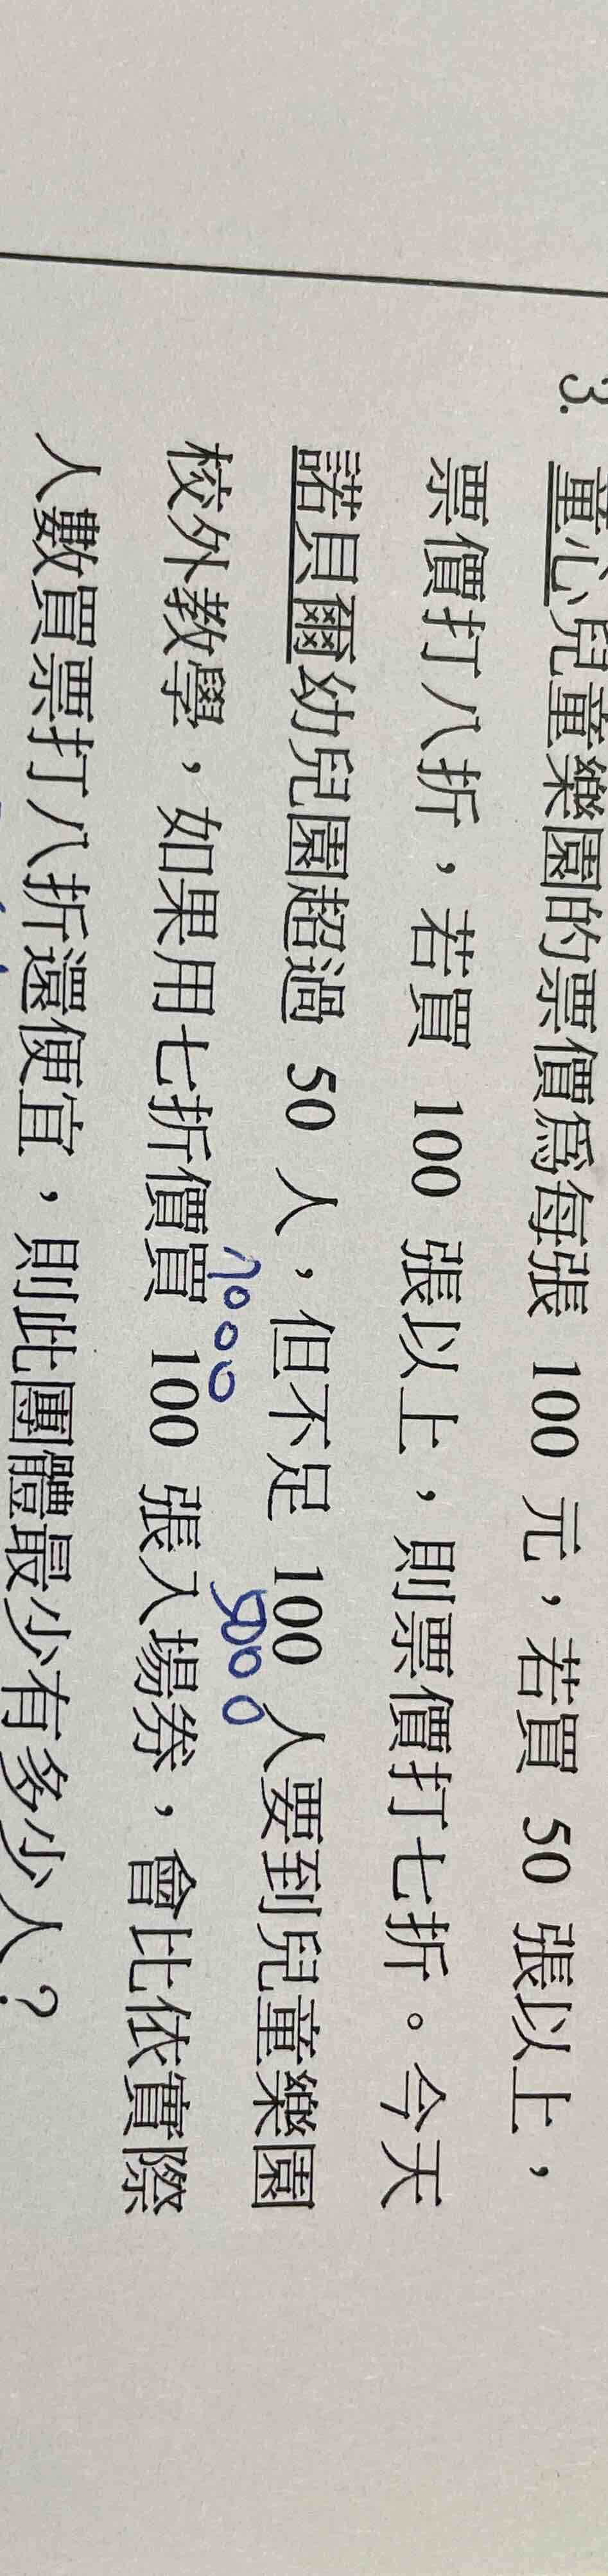 3. 童心兒童樂園的票價為每張 100 元，若買 50 張以上，
票價打八折，若買 100 張以上，則票價打七折。今天
諾貝爾幼兒園超過 50 人，但不足 100 人要到兒童樂園
7000
校外教學，如果用七折價買 100 張入場券，會比依實際
人數買票打八折還便宜，則此團體最少有多少人？